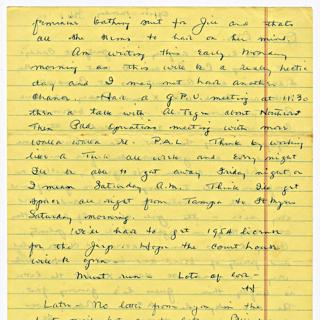 bathing suit for Jill and thats
all she seems to have on her mind.
Am writing this early Monday
morning as this will be a really hectic
day and I may not have another
chance. Have a G.P.U. meeting at 11:30
then a talk with Al about Northwest
Then Pad Operations meeting with more
walla walla re. P.A.L. Think by working
like a Turk all week and every night
I'll be able to get away Friday night or
I mean Saturday A.M. Think I'll get
space all right from Tampa to Ft Myers
Saturday morning.
We'll have to get 1954 license
for the Jeep - Hope the Court house
will be open -
Must run - Lots of love -
H
Later - No letter from you in the